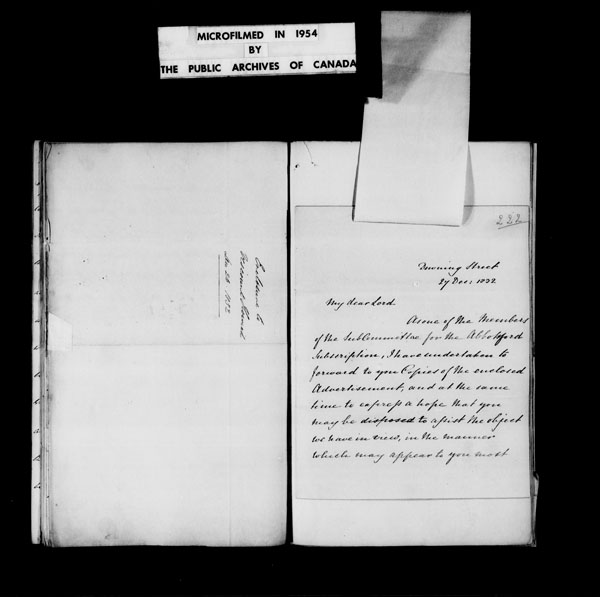 MICROFILMED IN 1954
BY
THE PUBLIC ARCHIVES OF CANADA
222
Downing Street
27 Dec: 1832
My dear Lord
As one of the Members
of the SubCommittee for the Abbotsford
Subscription, I have undertaken to
forward to you Copies of the enclosed
Advertisement, and at the same
time to express a hope that you
may be disposed to assist the object
we have in view, in the manner
which may appear to you most